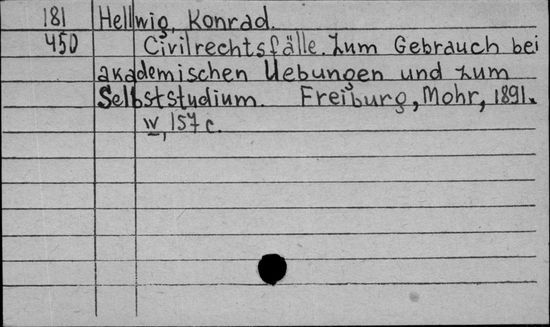 181 Hellwig, Konrad.
450 Civilrechtsfälle. Zum Gebrauch bei
akademischen Uebungen und zum
Selbststudium. Freiburg, Mohr, 1891.
IV, 157 c.